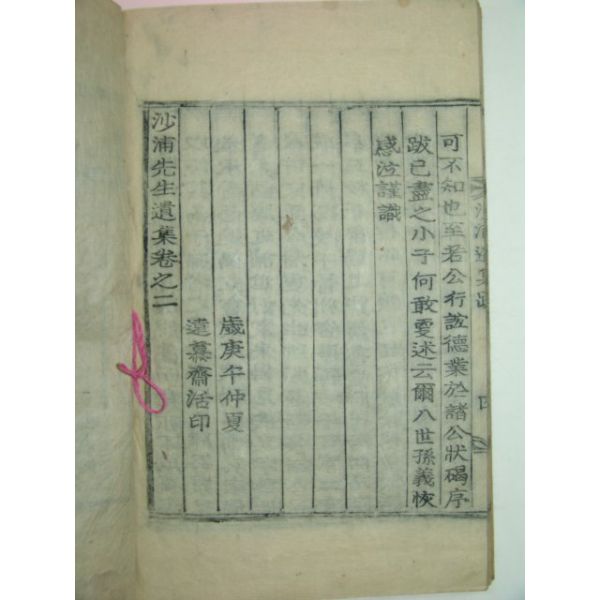 可不知也至若公行誼德業於諸公狀碣序
跋已盡之小子何敢更述云爾八世孫義恢
感泣謹識
歲庚午仲夏
遠慕齋活印
沙浦先生遺集卷之二